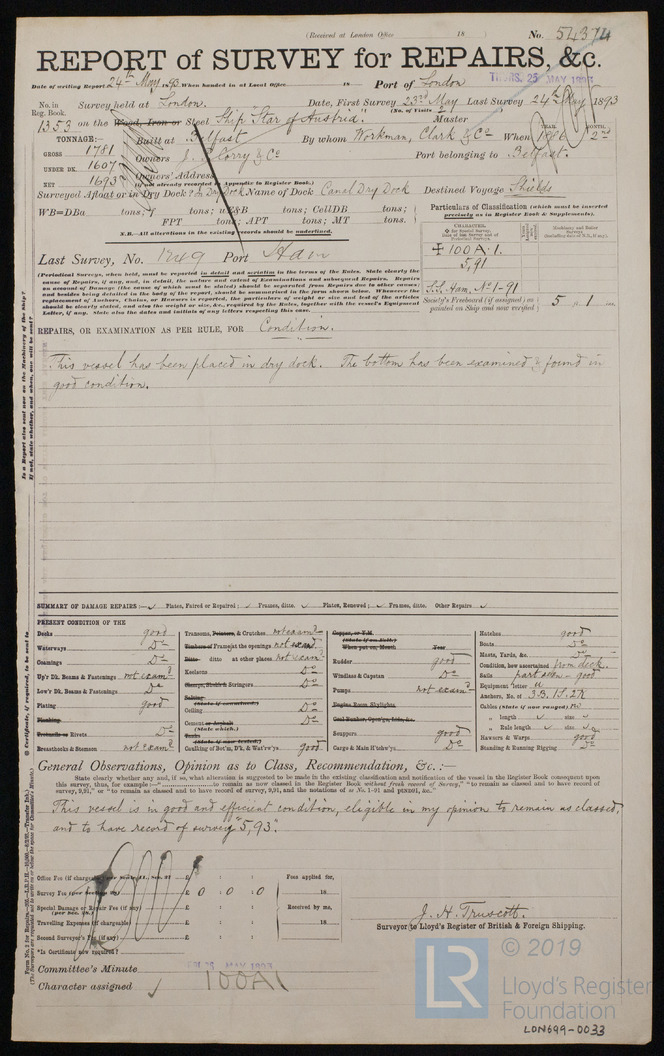 (Received at London Office 18 ) No. 54374
REPORT of SURVEY for REPAIRS, &c.
Date of writing Report 24th May 1893 When handed in at Local Office 18 Port of London
THURS. 25 MAY 1893
No. in Reg. Book. Survey held at London. Date, First Survey 23rd May Last Survey 24th May 1893
(No. of Visits 2)
1353 on the Wood, Iron or Steel Ship Star of Austria. Master
TONNAGE: Built at Belfast By whom Workman, Clark & Co When 1886 2nd
YEAR. MONTH.
GROSS 1781 Owners J. P. Corry & Co Port belonging to Belfast.
UNDER DK. 1607 Owners' Address
(if not already recorded in Appendix to Register Book.)
NET 1693
Surveyed Afloat or in Dry Dock? In Dry Dock Name of Dock Canal Dry Dock Destined Voyage Shields
WB=DBa tons; f tons; uE&B tons; CellDB tons;
FPT tons; APT tons; MT tons.
N.B.—All alterations in the existing records should be underlined.
Particulars of Classification (which must be inserted precisely as in Register Book & Supplements).
CHARACTER.
✠ 100A·1.
5,91
S.S. Ham. No 1-91
Society's Freeboard (if assigned) as painted on Ship and now verified 5 ft. 1 ins.
Last Survey, No. 1429 Port Ham
(Periodical) Surveys, when held, must be reported in detail and seriatim in the terms of the Rules. State clearly the
cause of Repairs, if any, and, in detail, the nature and extent of Examinations and subsequent Repairs. Repairs
on account of Damage (the cause of which must be stated) should be separated from Repairs due to other causes;
and besides being detailed in the body of the report, should be summarised in the form shown below. Whenever the
replacement of Anchors, Chains, or Hawsers is reported, the particulars of weight or size and test of the articles
should be clearly stated, and also the weight or size, &c., required by the Rules, together with the vessel's Equipment
Letter, if any. State also the dates and initials of any letters respecting this case.
REPAIRS, OR EXAMINATION AS PER RULE, FOR Condition.
This vessel has been placed in dry dock. The bottom has been examined & found in
good condition.
SUMMARY OF DAMAGE REPAIRS:— Plates, Faired or Repaired; Frames, ditto. Plates, Renewed; Frames, ditto. Other Repairs
PRESENT CONDITION OF THE
Decks good
Waterways Do
Coamings Do
Up'r Dk. Beams & Fastenings not exam'd
Low'r Dk. Beams & Fastenings Do
Plating good
Planking
Treenails or Rivets Do
Breasthooks & Stemson not exam'd
Transoms, Pointers, & Crutches not exam'd
Timbers of Frames at the openings not exam'd
Ditto ditto at other places not exam'd
Keelsons Do
Clamps, Shelfs & Stringers Do
Salting (State if examined)
Ceiling Do
Cement or Asphalt (State which.) Do
Tanks (State if now tested)
Caulking of Bot'm, D'k, & Wat'rw'ys good
Copper, or Y.M. (State if on Felt.)
When put on, Month Year
Rudder good
Windlass & Capstan Do
Pumps not exam'd
Engine Room Skylights
Coal Bunker, Open'gs, Lids, &c.
Scuppers good
Cargo & Main H'tchw'ys Do
Hatches good
Boats Do
Masts, Yards, &c. Do
Condition, how ascertained from deck.
Sails part seen - good
Equipment letter u
Anchors, No. of 3.B. 1S. 2K
Cables (State if now ranged) no
" length size
" Rule length size
Hawsers & Warps good
Standing & Running Rigging Do
General Observations, Opinion as to Class, Recommendation, &c. :—
State clearly whether any, and if so, what alteration is suggested to be made in the existing classification and notification of the vessel in the Register Book consequent upon
this survey, thus, for example:—" to remain as classed and now recorded in the Register Book without fresh record of Survey," "to remain as classed and to have record of
survey, 9,91," or "to remain as classed and to have record of survey, 9,91, and the notations of
This vessel is in good and efficient condition, eligible in my opinion to remain as classed,
and to have record of survey "5,93".
Office Fee (if chargeable) £ : : Fees applied for,
Survey Fee £ 0 : 0 : 0 18
Special Damage or Repair Fee (if any) £ : : Received by me,
(per Sec. 28.)
Travelling Expenses (if chargeable) £ : : 18
Second Surveyor's Fee (if any) £ : :
*Is Certificate now required?
J. H. Truscott.
Surveyor to Lloyd's Register of British & Foreign Shipping.
Committee's Minute FRI. 26 MAY 1893
Character assigned 100A1
© 2019
LR
Lloyd's Register
Foundation
LON699-0033